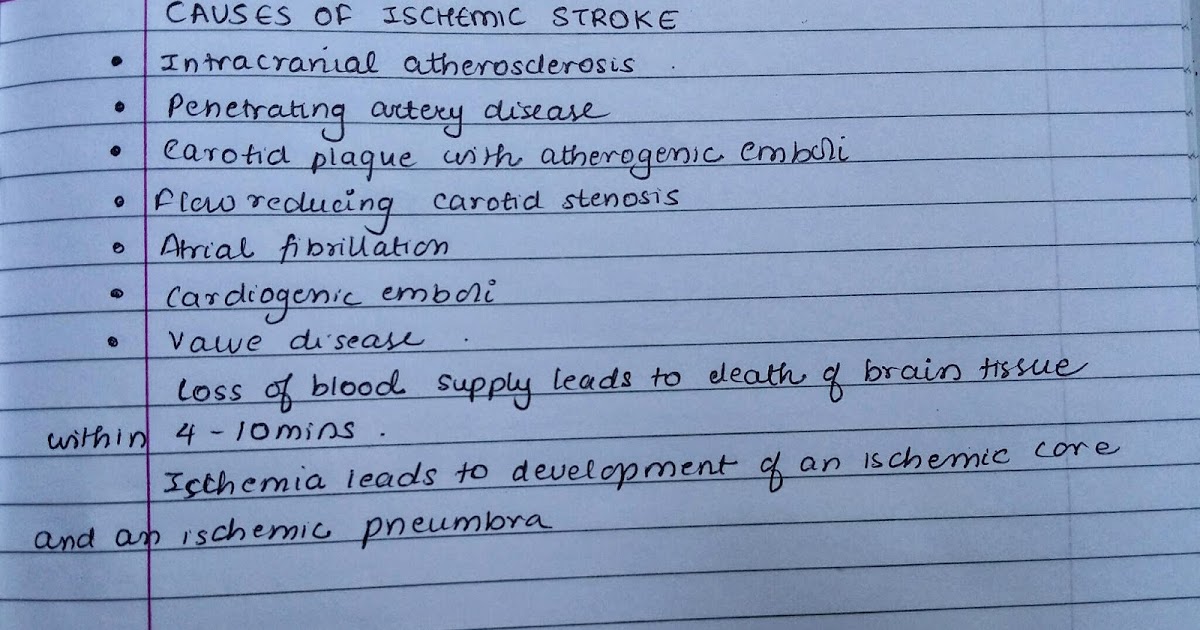 CAUSES OF ISCHEMIC STROKE
• Intracranial atherosclerosis .
• Penetrating artery disease
• Carotid plaque with atherogenic emboli
• Flow reducing carotid stenosis
• Atrial fibrillation
• Cardiogenic emboli
• Valve disease .
Loss of blood supply leads to death of brain tissue
within 4-10mins .
Iscthemia leads to development of an ischemic core
and an ischemic pneumbra